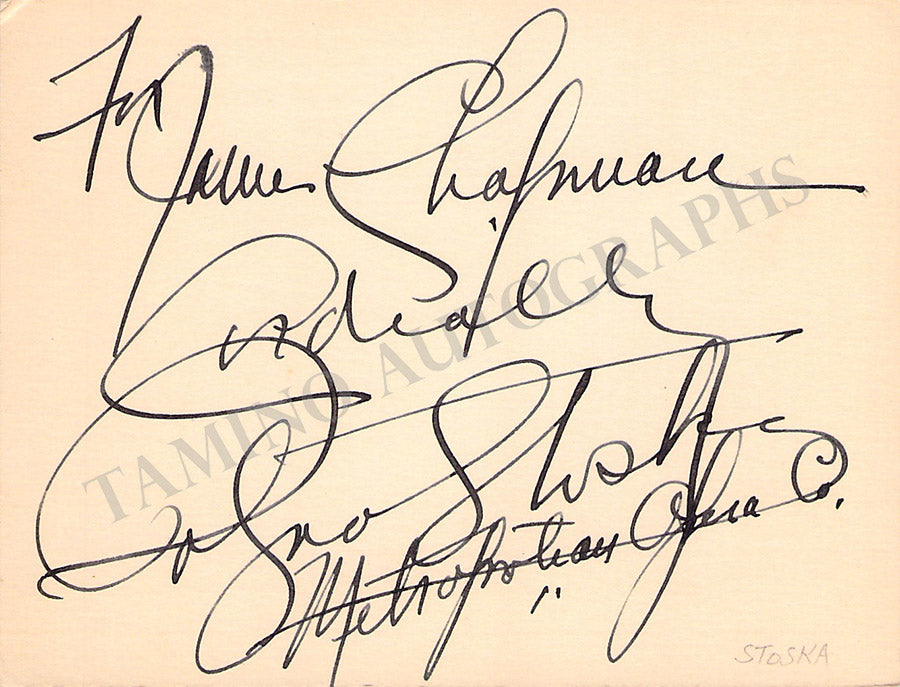 To James Chapman
Cordially
Polyna Stoska
Metropolitan Opera Co.
STOSKA
TAMINO AUTOGRAPHS